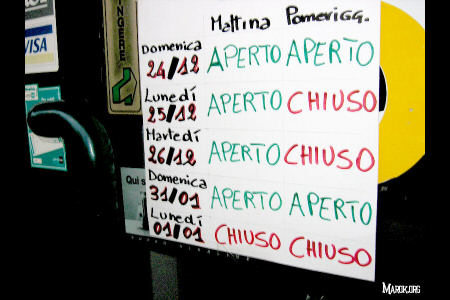 VISA
NGERE
Mattina Pomerigg.
Domenica
24/12 APERTO APERTO
Lunedí
25/12 APERTO CHIUSO
Martedí
26/12 APERTO CHIUSO
Domenica
31/01 APERTO APERTO
Lunedí
01/01 CHIUSO CHIUSO
Qui s
MAROK.ORG